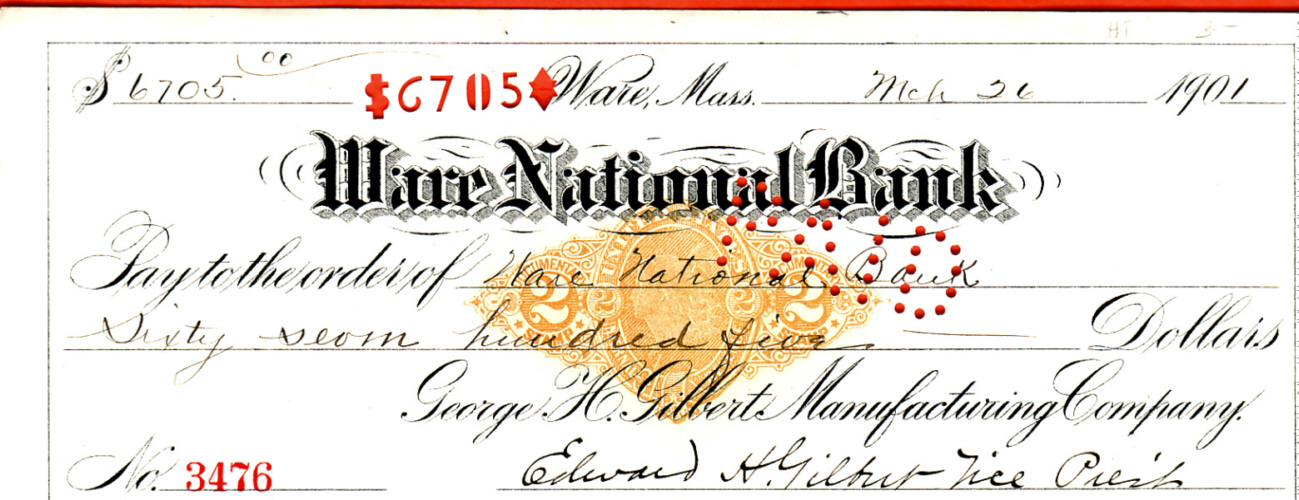 HT 3-
$ 6705.00 $6705 Ware, Mass. Mch 26 1901
Ware National Bank
Pay to the order of Ware National Bank
DOCUMENTARY 2 STAMP 2 DOCUMENTARY 2 STAMP
Sixty seom hundred five Dollars
George H. Gilbert Manufacturing Company.
No. 3476 Edward H. Gilbert Vice Prest